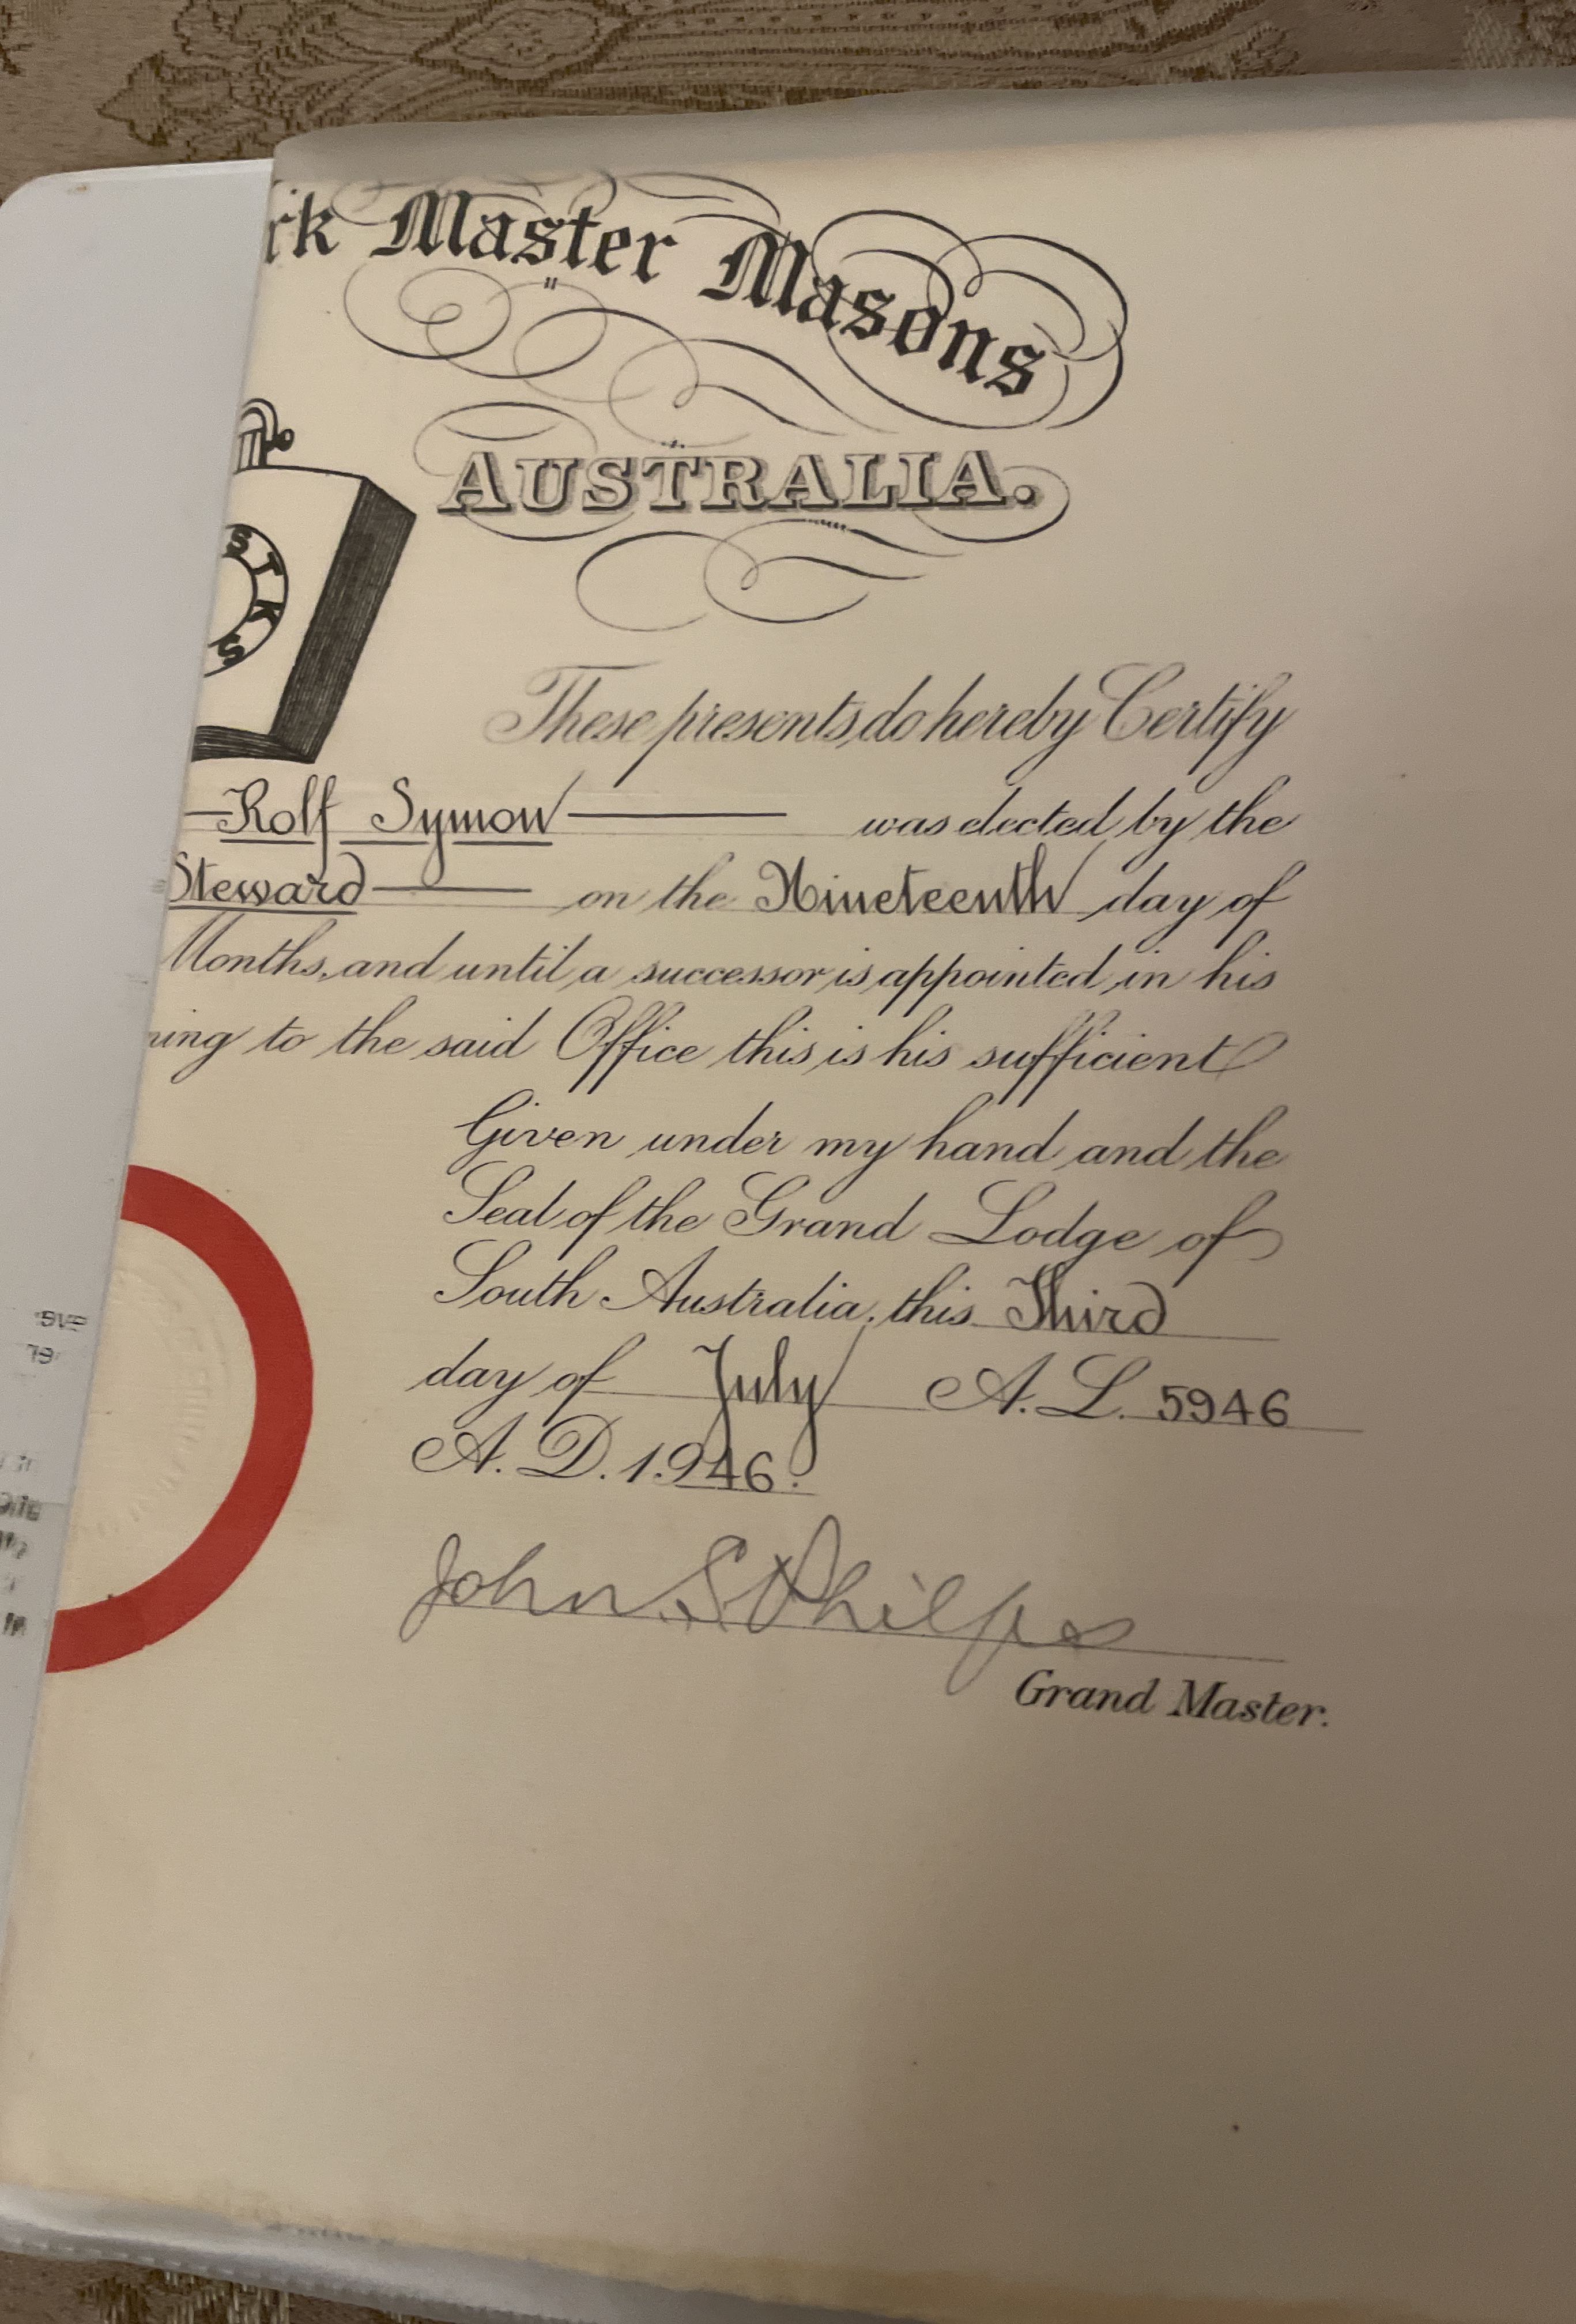 Master Masons
AUSTRALIA.
S T K S
These presents do hereby Certify
Rolf Symon was elected by the
Steward on the Nineteenth day of
Months, and until a successor is appointed in his
to the said Office this is his sufficient
Given under my hand and the
Seal of the Grand Lodge of
South Australia, this Third
day of July A. L. 5946
A. D. 1946.
John S Philps
Grand Master.